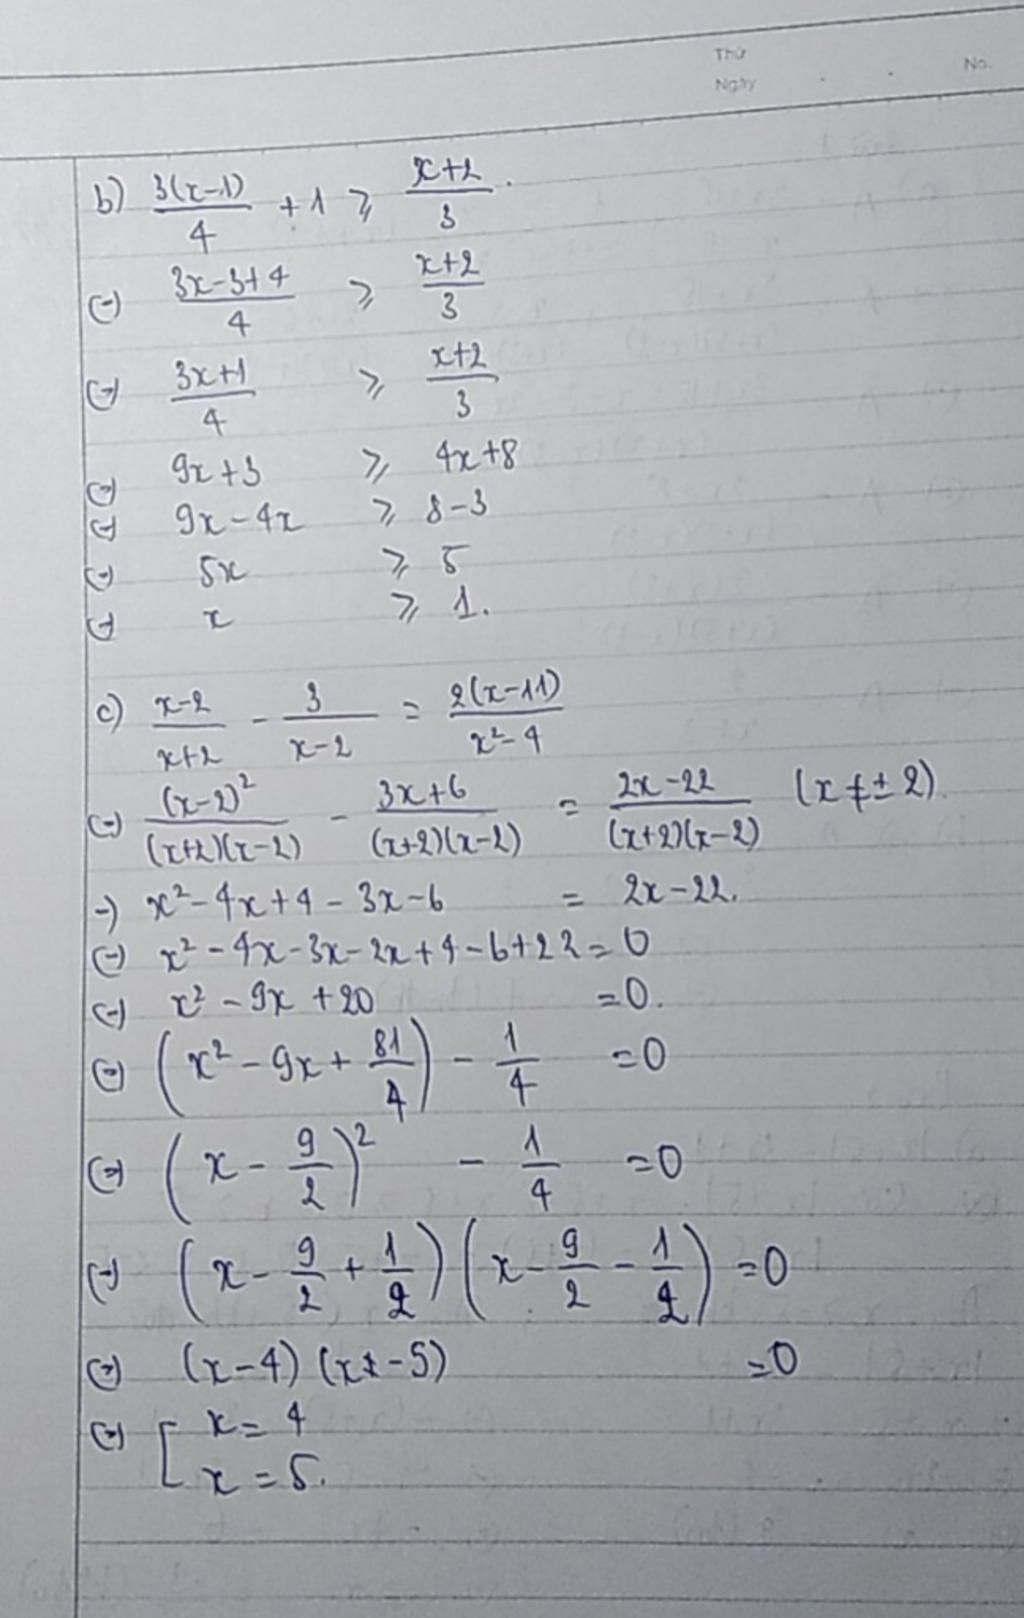 Thứ
Ngày No.
b) 3(x-1)/4 + 1 ⩾ (x+2)/3.
⇔ (3x-3+4)/4 ⩾ (x+2)/3
⇔ (3x+1)/4 ⩾ (x+2)/3
⇔ 9x+3 ⩾ 4x+8
⇔ 9x-4x ⩾ 8-3
⇔ 5x ⩾ 5
⇔ x ⩾ 1.
c) (x-2)/(x+2) - 3/(x-2) = 2(x-11)/(x²-4)
⇔ (x-2)²/((x+2)(x-2)) - (3x+6)/((x+2)(x-2)) = (2x-22)/((x+2)(x-2)) (x ≠ ± 2)
⇒ x²-4x+4-3x-6 = 2x-22.
⇔ x²-4x-3x-2x+4-6+22=0
⇔ x²-9x+20 =0.
⇔ (x²-9x+81/4) - 1/4 =0
⇔ (x-9/2)² - 1/4 =0
⇔ (x-9/2+1/2)(x-9/2-1/2)=0
⇔ (x-4)(x-5) =0
⇔ [ x=4
x=5.